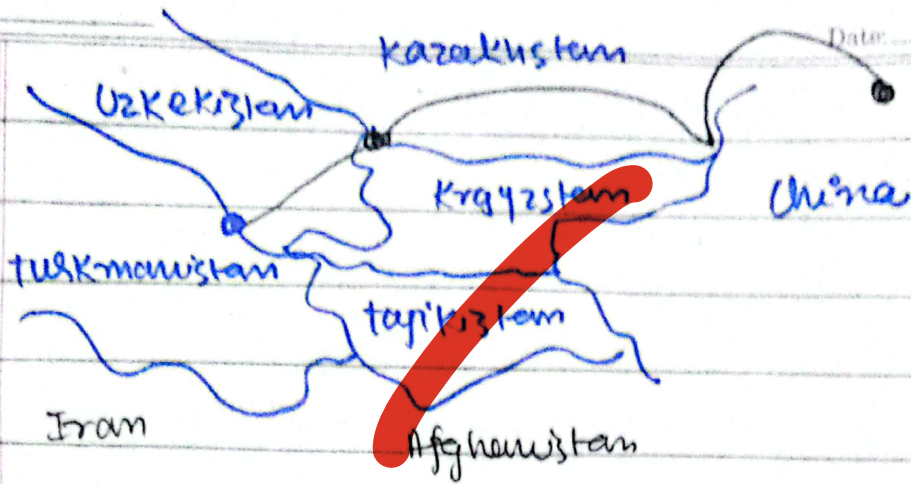 Date:
Kazakhstan
Uzkekizstan
Krgyzstan
China
turkmanistan
tajikizstan
Iran
Afghanistan